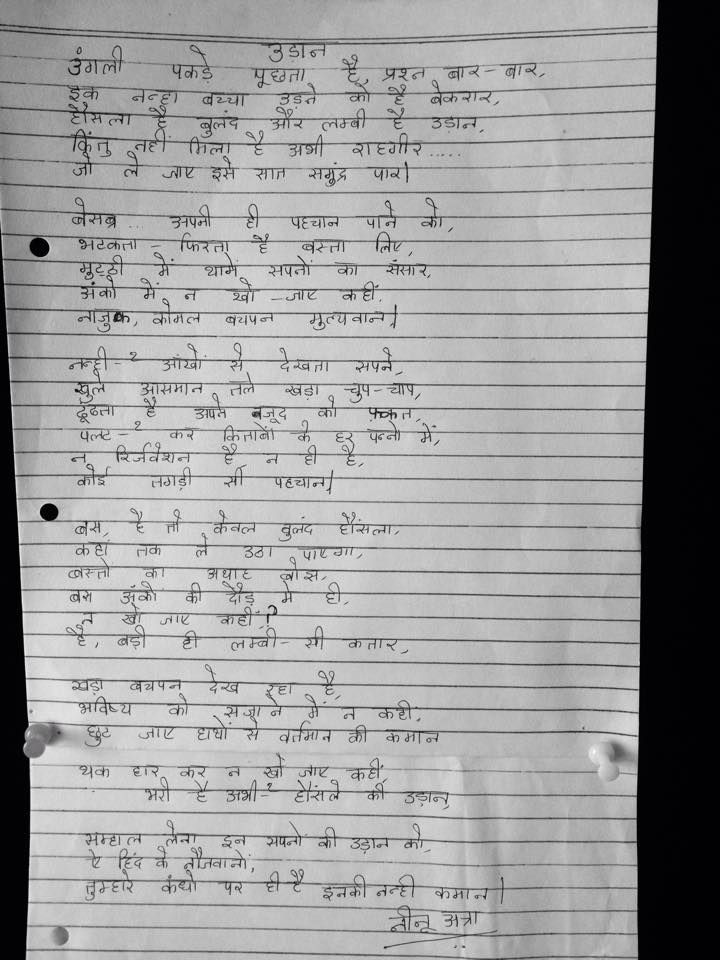 उड़ान
उंगली पकड़े पूछता है, प्रश्न बार-बार,
इक नन्हा बच्चा उड़ने को है बेकरार,
हौसला है बुलंद और लम्बी है उड़ान,
किंतु नहीं मिला है अभी राहगीर.....
जो ले जाए इसे सात समुंद्र पार।
बेसब्र... अपनी ही पहचान पाने को,
भटकता-फिरता है बस्ता लिए,
मुट्ठी में थामें सपनों का संसार,
अंको में न खो-जाए कहीं,
नाजुक, कोमल बचपन मुल्यवान।
नन्ही-२ आंखों से देखता सपने,
खुले आसमान तले खड़ा चुप-चाप,
ढूंढता है अपने वजूद को फकत,
पलट-२ कर किताबों के हर पन्नो में,
न रिर्जवेशन है न ही है,
कोई तगड़ी सी पहचान।
बस, है तो केवल बुलंद हौंसला,
कहां तक ले उठा पाएगा,
बस्तो का अथाह बोझ,
बस अंको की दौड़ मे ही,
न खो जाए कहीं?
है, बड़ी ही लम्बी-सी कतार,
खड़ा बचपन देख रहा है,
भविष्य को सजाने में न कही,
छुट जाए हाथों से वर्तमान की कमान
थक हार कर न खो जाए कहीं,
भरी है अभी-२ हौंसले की उड़ान,
सम्हाल लेना इन सपनों की उड़ान को,
ऐ हिंद के नौजवानों,
तुम्हारे कंधो पर ही है इनकी नन्ही कमान।
नीनू अत्रा